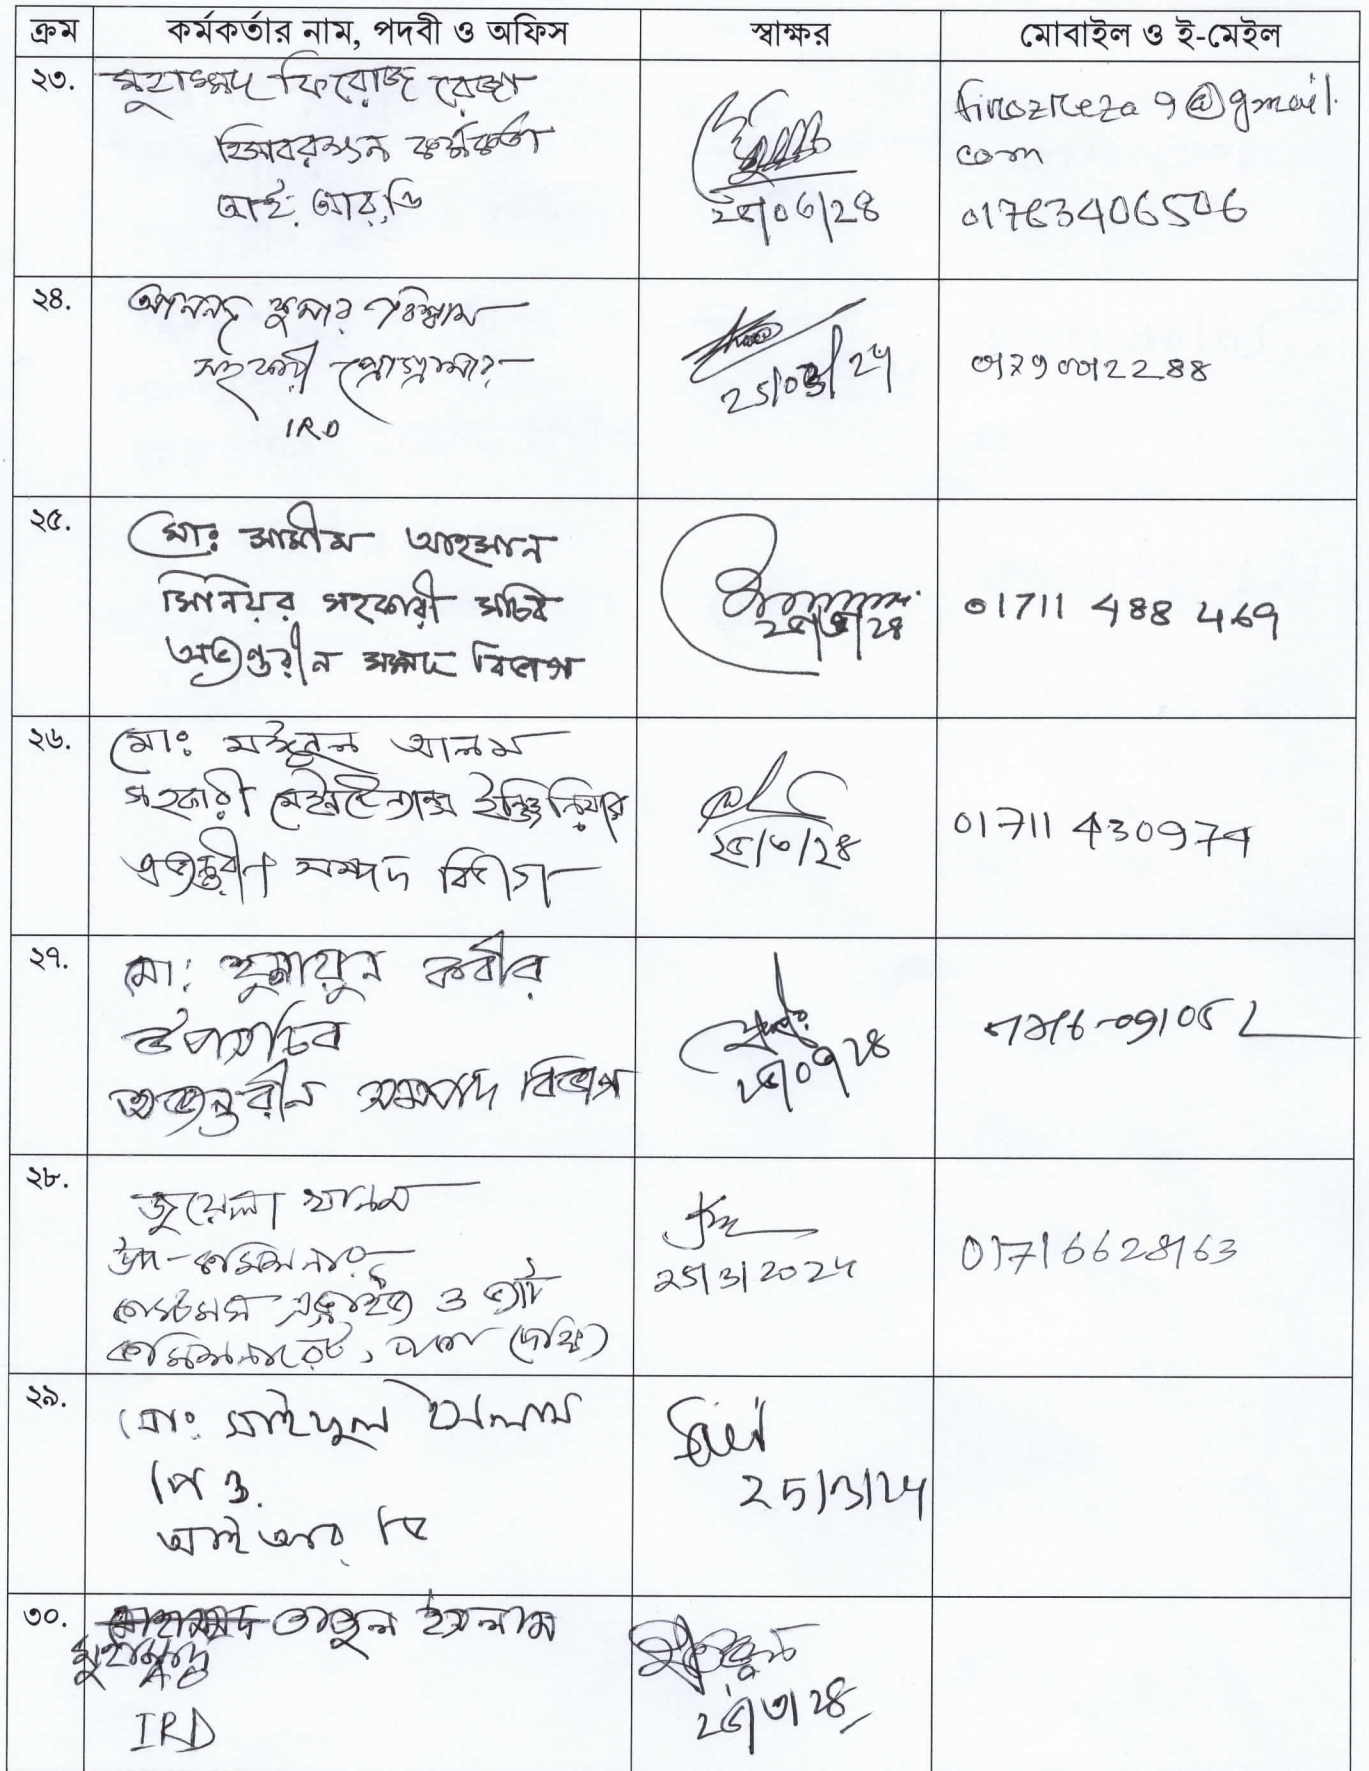 ক্রম কর্মকর্তার নাম, পদবী ও অফিস স্বাক্ষর মোবাইল ও ই-মেইল
২৩. মুহাম্মদ ফিরোজ রেজা
হিসাবরক্ষন কর্মকর্তা
আই. আর. ডি
২৫/০৩/২৪
firozreza9@gmail.
com
01763406506
২৪. আনন্দ কুমার বিশ্বাস
সহকারী প্রোগ্রামার
IRD
25/03/24
২৫. মোঃ সামীম আহসান
সিনিয়র সহকারী সচিব
অভ্যন্তরীন সম্পদ বিভাগ
২৫/৩/২৪
01711 488 469
২৬. মোঃ মইনুল আলম
সহকারী মেইনটেন্যান্স ইঞ্জিনিয়ার
অভ্যন্তরীণ সম্পদ বিভাগ
২৫/৩/২৪
01711 430974
২৭. মো: হুমায়ুন কবীর
উপসচিব
অভ্যন্তরীন সম্পদ বিভাগ
২৫/০৩/২৪
২৮. জুয়েলা খানম
উপ-কমিশনার
কাস্টমস এক্সাইজ ও ভ্যাট
কমিশনারেট, ঢাকা (দক্ষিণ)
25/3/2024
01716628163
২৯. মোঃ সাইফুল ইসলাম
পি ও.
আই আর ডি
25/3/24
৩০. ইসলাম
মুহাম্মদ
AO
IRD
২৫/৩/২৪